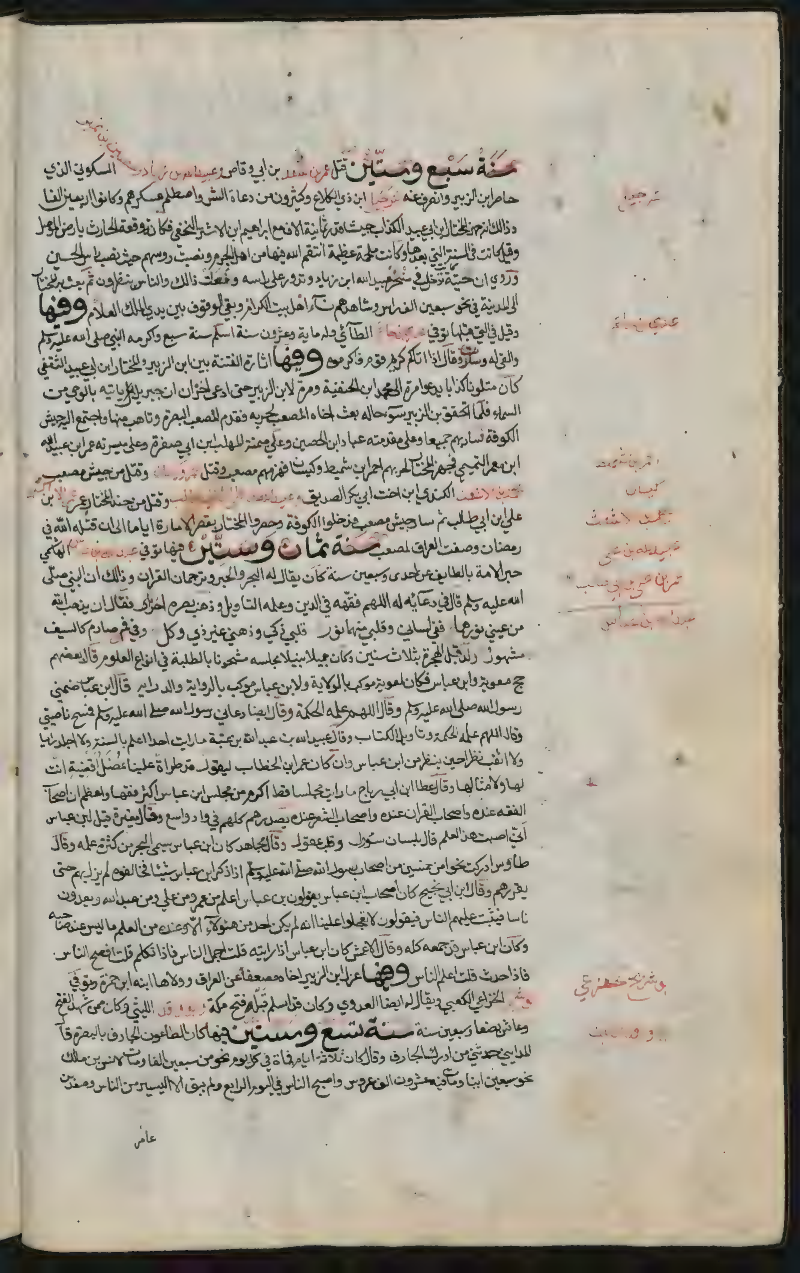 سنة سبع وستين قتل عمر بن سعد بن ابي وقاص وعبيد الله بن زياد السكوني الذي
حاصر ابن الزبير وانصرف عنه شرحبيل ابن ذي الكلاع وكثيرون من دعاة الشر واصطلم عسكرهم وكانوا اربعين الفا
وذالك ان جهز المختار ابن ابي عبيد الكذاب جيشا في ثمانية الاف مع ابراهيم ابن الاشتر النخعي فكانت وقعة الخازر بارض الموصل
وقيل كانت في السنة التي بعدها وكانت ملحمة عظيمة انتقم الله فيها من اهل الجرم ونصبت روسهم حيث نصب راس الحسين
وروي ان حية تدخل في منخر عبيد الله ابن زياد وتدور على راسه وفعلت ذالك والناس ينظرون ثم بعث بهم المختار
الى المدينة في نحو سبعين الف راس وشاهدهم اهل بيت الكرام وبقي الوقوف بين يدي الملك العلام وفيها
وقيل في التي قبلها توفي عدي بن حاتم الطائي وله ماية وعشرون سنة اسلم سنة سبع وكرمه النبي صلى الله عليه وسلم
والقى له وسادة وقال اذا اتاكم كريم قوم فاكرموه وفيها اثارة الفتنة بين ابن الزبير والمختار ابن ابي عبيد الثقفي
كان متلونا كذابا يدعو مرة لمحمد ابن الحنفية ومرة لابن الزبير حتى ادعى اخرا ان جبريل ياتيه بالوحي من
السماء فلما تحقق بن الزبير سوء حاله بعث اخاه المصعب لحربه فقدم المصعب البصرة وتاهب منها واجتمع اليه جيش
الكوفة فسار بهم جميعا وعلى مقدمته عباد ابن الحصين وعلى ميمنته المهلب ابن ابي صفرة وعلى ميسرته عمر ابن عبيد الله
ابن معمر التيمي فجهز المختار لحربهم احمر ابن شميط وكيسان فهزمهم مصعب وقتل وقتل من جيش مصعب
محمد بن الاشعث الكندي ابن اخت ابي بكر الصديق وعبيد الله بن علي بن ابي طالب وقتل من جند المختار عمر الاكبر ابن
علي ابن ابي طالب ثم سار جيش مصعب فدخلوا الكوفة وحصروا المختار بقصر الامارة اياما الى ان قتله الله في
رمضان وصفت العراق لمصعب سنة ثمان وستين فيها توفي عبد الله بن عباس الهاشمي
حبر الامة بالطايف عن احدى وسبعين سنة كان يقال له البحر والحبر وترجمان القران وذالك ان النبي صلى
الله عليه وسلم قال في دعائه له اللهم فقهه في الدين وعلمه التاويل وذهب بصره اخرا فقال ان يذهب الله
من عيني نورهما ففي لساني وقلبي منهما نور قلبي ذكي وذهني غير ذي وكل وفي فمي صارم كالسيف
مشهور ولد قبل الهجرة بثلاث سنين وكان جميلا نبيلا مجلسه مشحونا بالطلبة في انواع العلوم قال بعضهم
حج معوية وابن عباس فكان لمعوية موكب بالولاية ولابن عباس موكب بالرواية والدراية قال ابن عباس ضمني
رسول الله صلى الله عليه وسلم وقال اللهم علمه الحكمة وقال ايضا دعاني رسول الله صلى الله عليه وسلم فمسح ناصيتي
وقال اللهم علمه الحكمة وتاويل الكتاب وقال عبيد الله بن عبد الله بن عتبة ما رايت احدا اعلم بالسنة ولا اجلد رايا
ولا اثقب نظرا حين ينظر من ابن عباس وان كان عمر ابن الخطاب ليقول قد طرات علينا عضل اقضية انت
لها ولامثالها وقال عطا ابن ابي رباح ما رايت مجلسا قط اكرم من مجلس ابن عباس اكثر فقها واعظم ان اصحاب
الفقه عنده واصحاب القران عنده واصحاب الشعر عنده يصدرهم كلهم في واد واسع وقال مغيرة قيل لابن عباس
انى اصبت هذا العلم قال بلسان سئول وقلب عقول وقال مجاهد كان ابن عباس يسمى البحر من كثرة علمه وقال
طاوس ادركت نحوا من خمسين من اصحاب رسول الله صلى الله عليه وسلم اذا ذكر ابن عباس شيئا فخالفوه لم يزل بهم حتى
يقررهم وقال ابن ابي نجيح كان اصحاب ابن عباس يقولون بن عباس اعلم من عمر ومن علي ومن عبد الله ويعدون
ناسا فيثب عليهم الناس فيقولون لا تعجلوا علينا انه لم يكن احد من هئولاء الا وعنده من العلم ما ليس عند صاحبه
وكان ابن عباس قد جمعه كله وقال الاعمش كان ابن عباس اذا رايته قلت اجمل الناس فاذا تكلم قلت افصح الناس
فاذا حدث قلت اعلم الناس وفيها عزل ابن الزبير اخاه مصعبا عن العراق وولاها ابنه ابن حمزة وتوفي
الخزاعي الكعبي ويقال له ايضا العدوي وكان قد اسلم قبل فتح مكة الليثي وكان ممن شهد الفتح
وعاش بضعا وسبعين سنة سنة تسع وستين فيها كان الطاعون الجارف بالبصرة قال
المدايني حدثني من ادرك الجارف وقال كان ثلاثة ايام فمات في كل يوم نحو من سبعين الفا ومات لانس بن مالك
نحو سبعين ابنا ومات فيه عشرون الف عروس واصبح الناس في اليوم الرابع ولم يبق الا اليسير من الناس وصعد بن
عامر
شرحبيل
عدي بن حاتم
كيسان
ابو شريح خزاعي